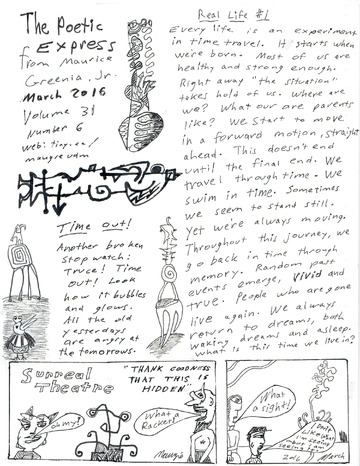 The Poetic
Express
from Maurice
Greenia, Jr.
March 2016
Volume 31
Number 6
web: tiny.cc/
maugre udm
Real Life #1
Every life is an experiment
in time travel. It starts when
we're born. Most of us are
healthy and strong enough.
Right away "the situation"
takes hold of us. Where are
we? What our are parents
like? We start to move
in a forward motion, straight
ahead. This doesn't end
until the final end. We
travel through time. We
swim in time. Sometimes
we seem to stand still.
Yet we're always moving.
Throughout this journey, we
go back in time through
memory. Random past
events emerge, vivid and
true. People who are gone
live again. We always
return to dreams, both
waking dreams and asleep.
What is this time we live in?
Time out!
Another broken
stop watch:
Truce! Time
out! Look
how it bubbles
and glows.
All the old
yesterdays
are angry at
the tomorrows.
Surreal
Theatre
"THANK GOODNESS
THAT THIS IS
HIDDEN"
Oh my!
What
a Racket!
Maugre
What
a sight!
I don't
like what
I'm seeing
2016
March